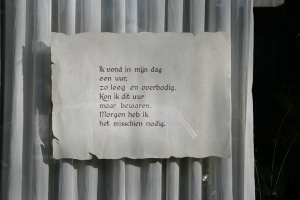 Ik vond in mijn dag
een uur,
zo leeg en overbodig.
Kon ik dit uur
maar bewaren.
Morgen heb ik
het misschien nodig.